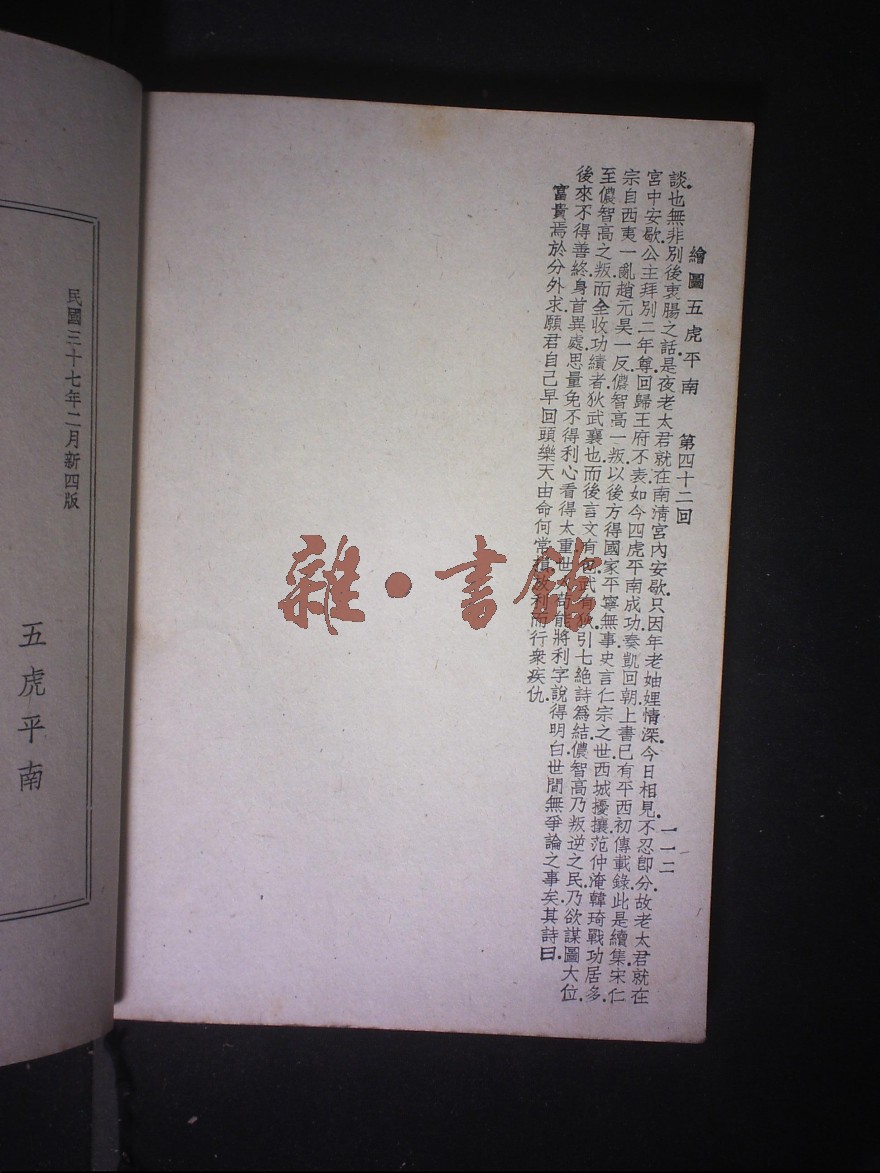 繪圖五虎平南 第四十二回 一一二
談也無非別後衷腸之話.是夜老太君就在南清宮內安歇.只因年老妯娌情深.今日相見.不忍卽分.故老太君就在
宮中安歇.公主拜別二年尊.回歸王府不表.如今四虎平南成功.奏凱回朝.上書已有平西初傳載錄.此是續集.宋仁
宗自西夷一亂.趙元昊一反.儂智高一叛.以後方得國家平寧無事.史言仁宗之世.西城擾攘.范仲淹韓琦戰功居多.
至儂智高之叛.而全收功績者.狄武襄也.而後言文有包.武有狄.引七絶詩爲結.儂智高乃叛逆之民.乃欲謀圖大位.
後來不得善終.身首異處.思量免不得利心看得太重.世能將利字說得明白.世間無爭論之事矣.其詩曰.
富貴焉於分外求.願君自己早回頭.樂天由命何常利而行衆疾仇.
雜·書館
民國三十七年二月新四版
五虎平南